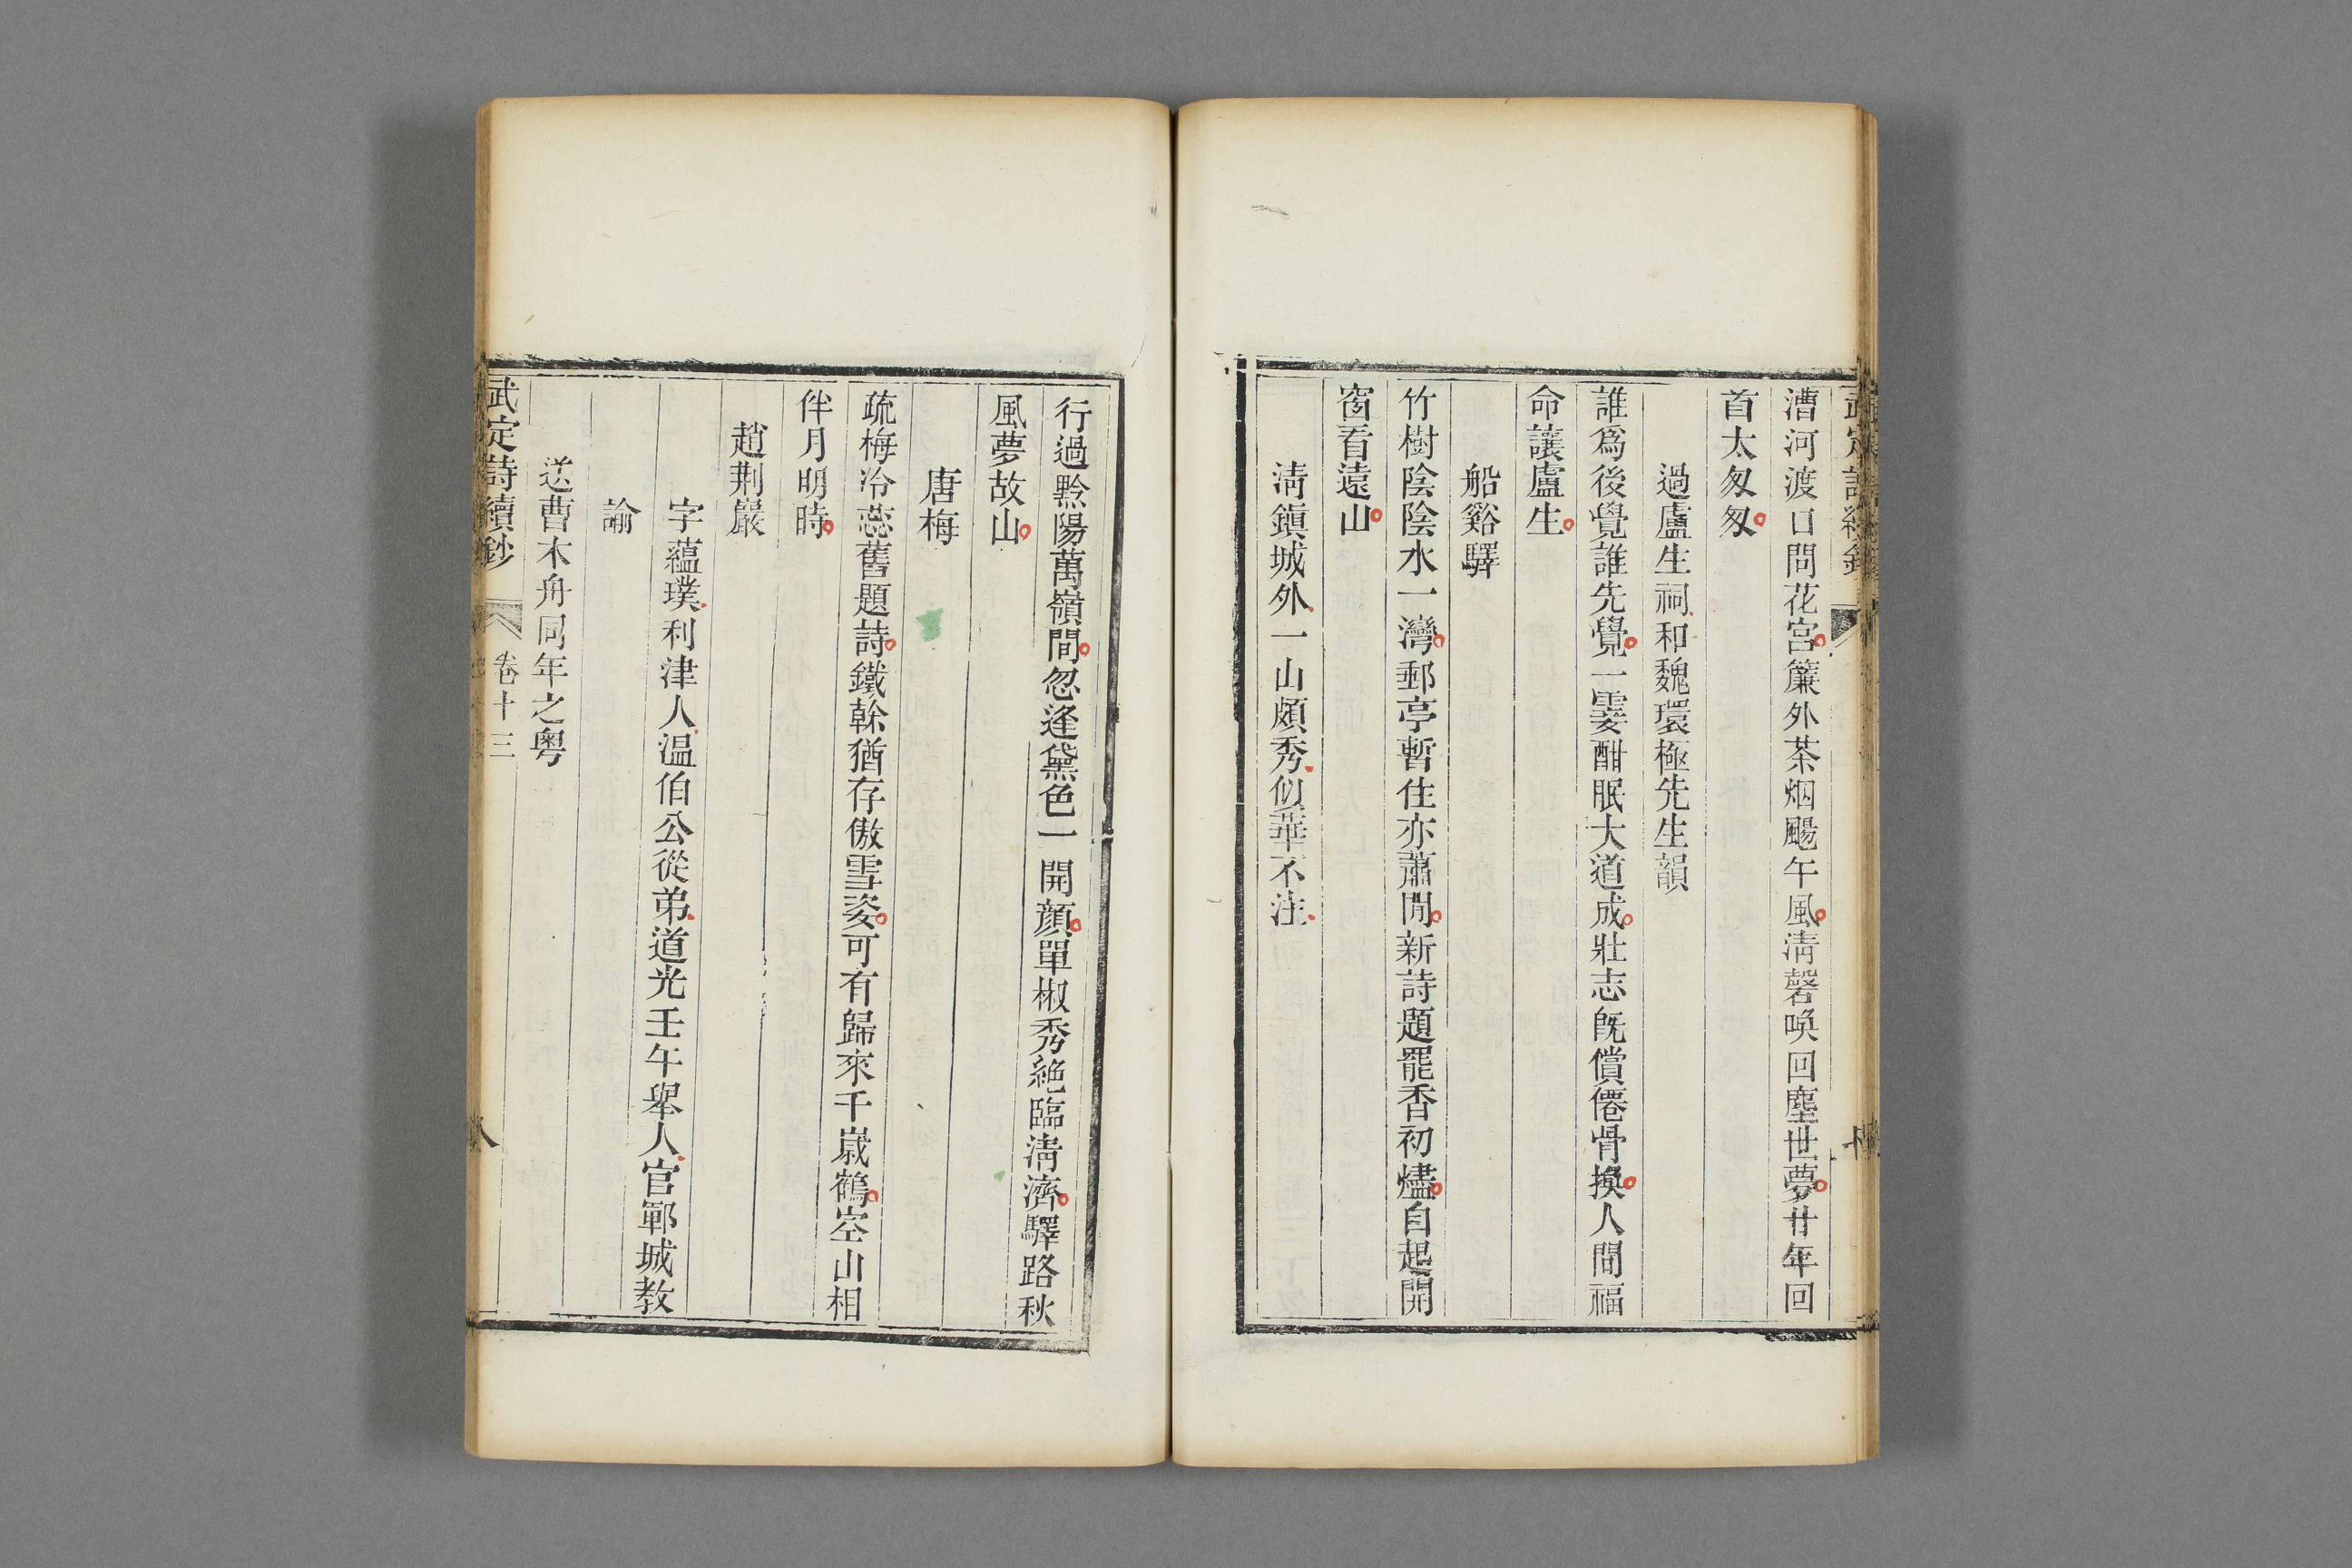 漕河渡口問花宮簾外茶烟颺午風淸磬喚回塵世夢廿年回
首太匆匆
過盧生祠和魏環極先生韻
誰爲後覺誰先覺一霎酣眠大道成壯志旣償僊骨換人間福
命讓盧生
船谿驛
竹樹陰陰水一灣郵亭暫住亦蕭閒新詩題罷香初燼自起開
窗看遠山
淸鎭城外一山頗秀似華不注
行過黔陽萬嶺間忽逢黛色一開顔單椒秀絶臨淸濟驛路秋
風夢故山
唐梅
疏梅冷蕊舊題詩鐵榦猶存傲雪姿可有歸來千歲鶴空山相
伴月明時
趙荆巖
字蘊璞利津人温伯公從弟道光壬午舉人官鄆城教
諭
送曹木舟同年之粤
武定詩續鈔
卷十三
八